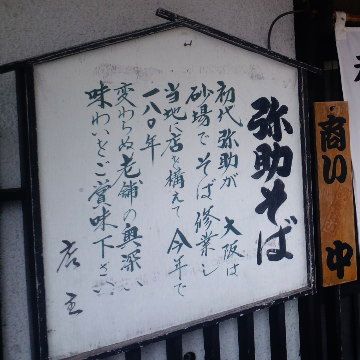 弥助そば
初代弥助が 大阪は
砂場で そば修業し
当地に店を構えて 今年で
一八〇年
変わらぬ老舗の奥深い
味わいをご賞味下さい
店主
商い中